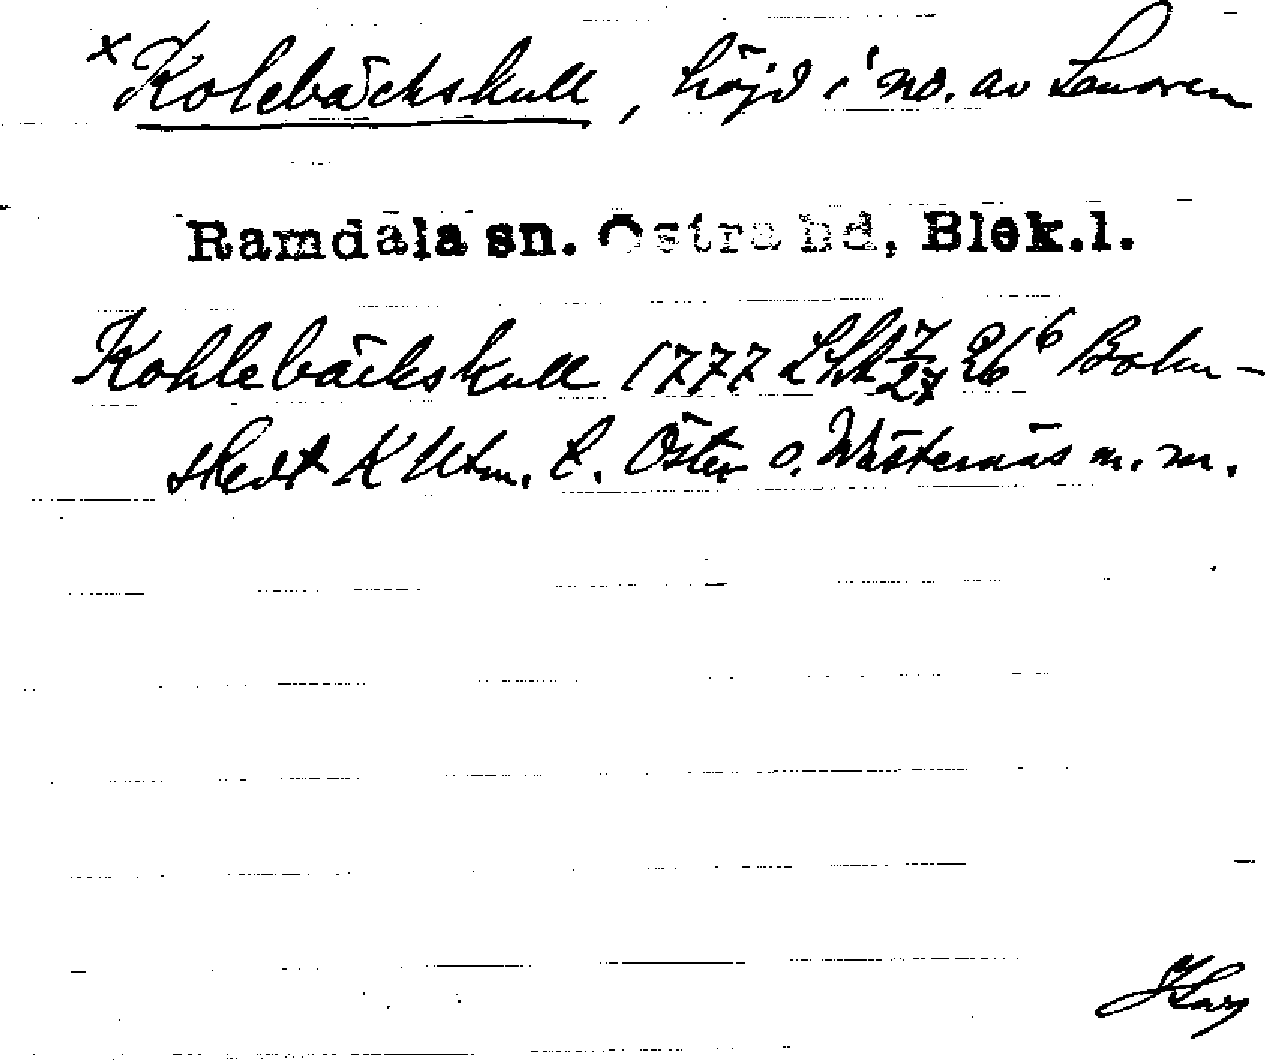 × Kolebäckskull, höjd i no. av Senoren
Ramdala sn. Östra hd, Blek.l.
Kohlebäckskull 1777 Lsk 17/27 26⁶ Bohn-
stedt K Utm. t. Öster o. Wästernäs m. m.